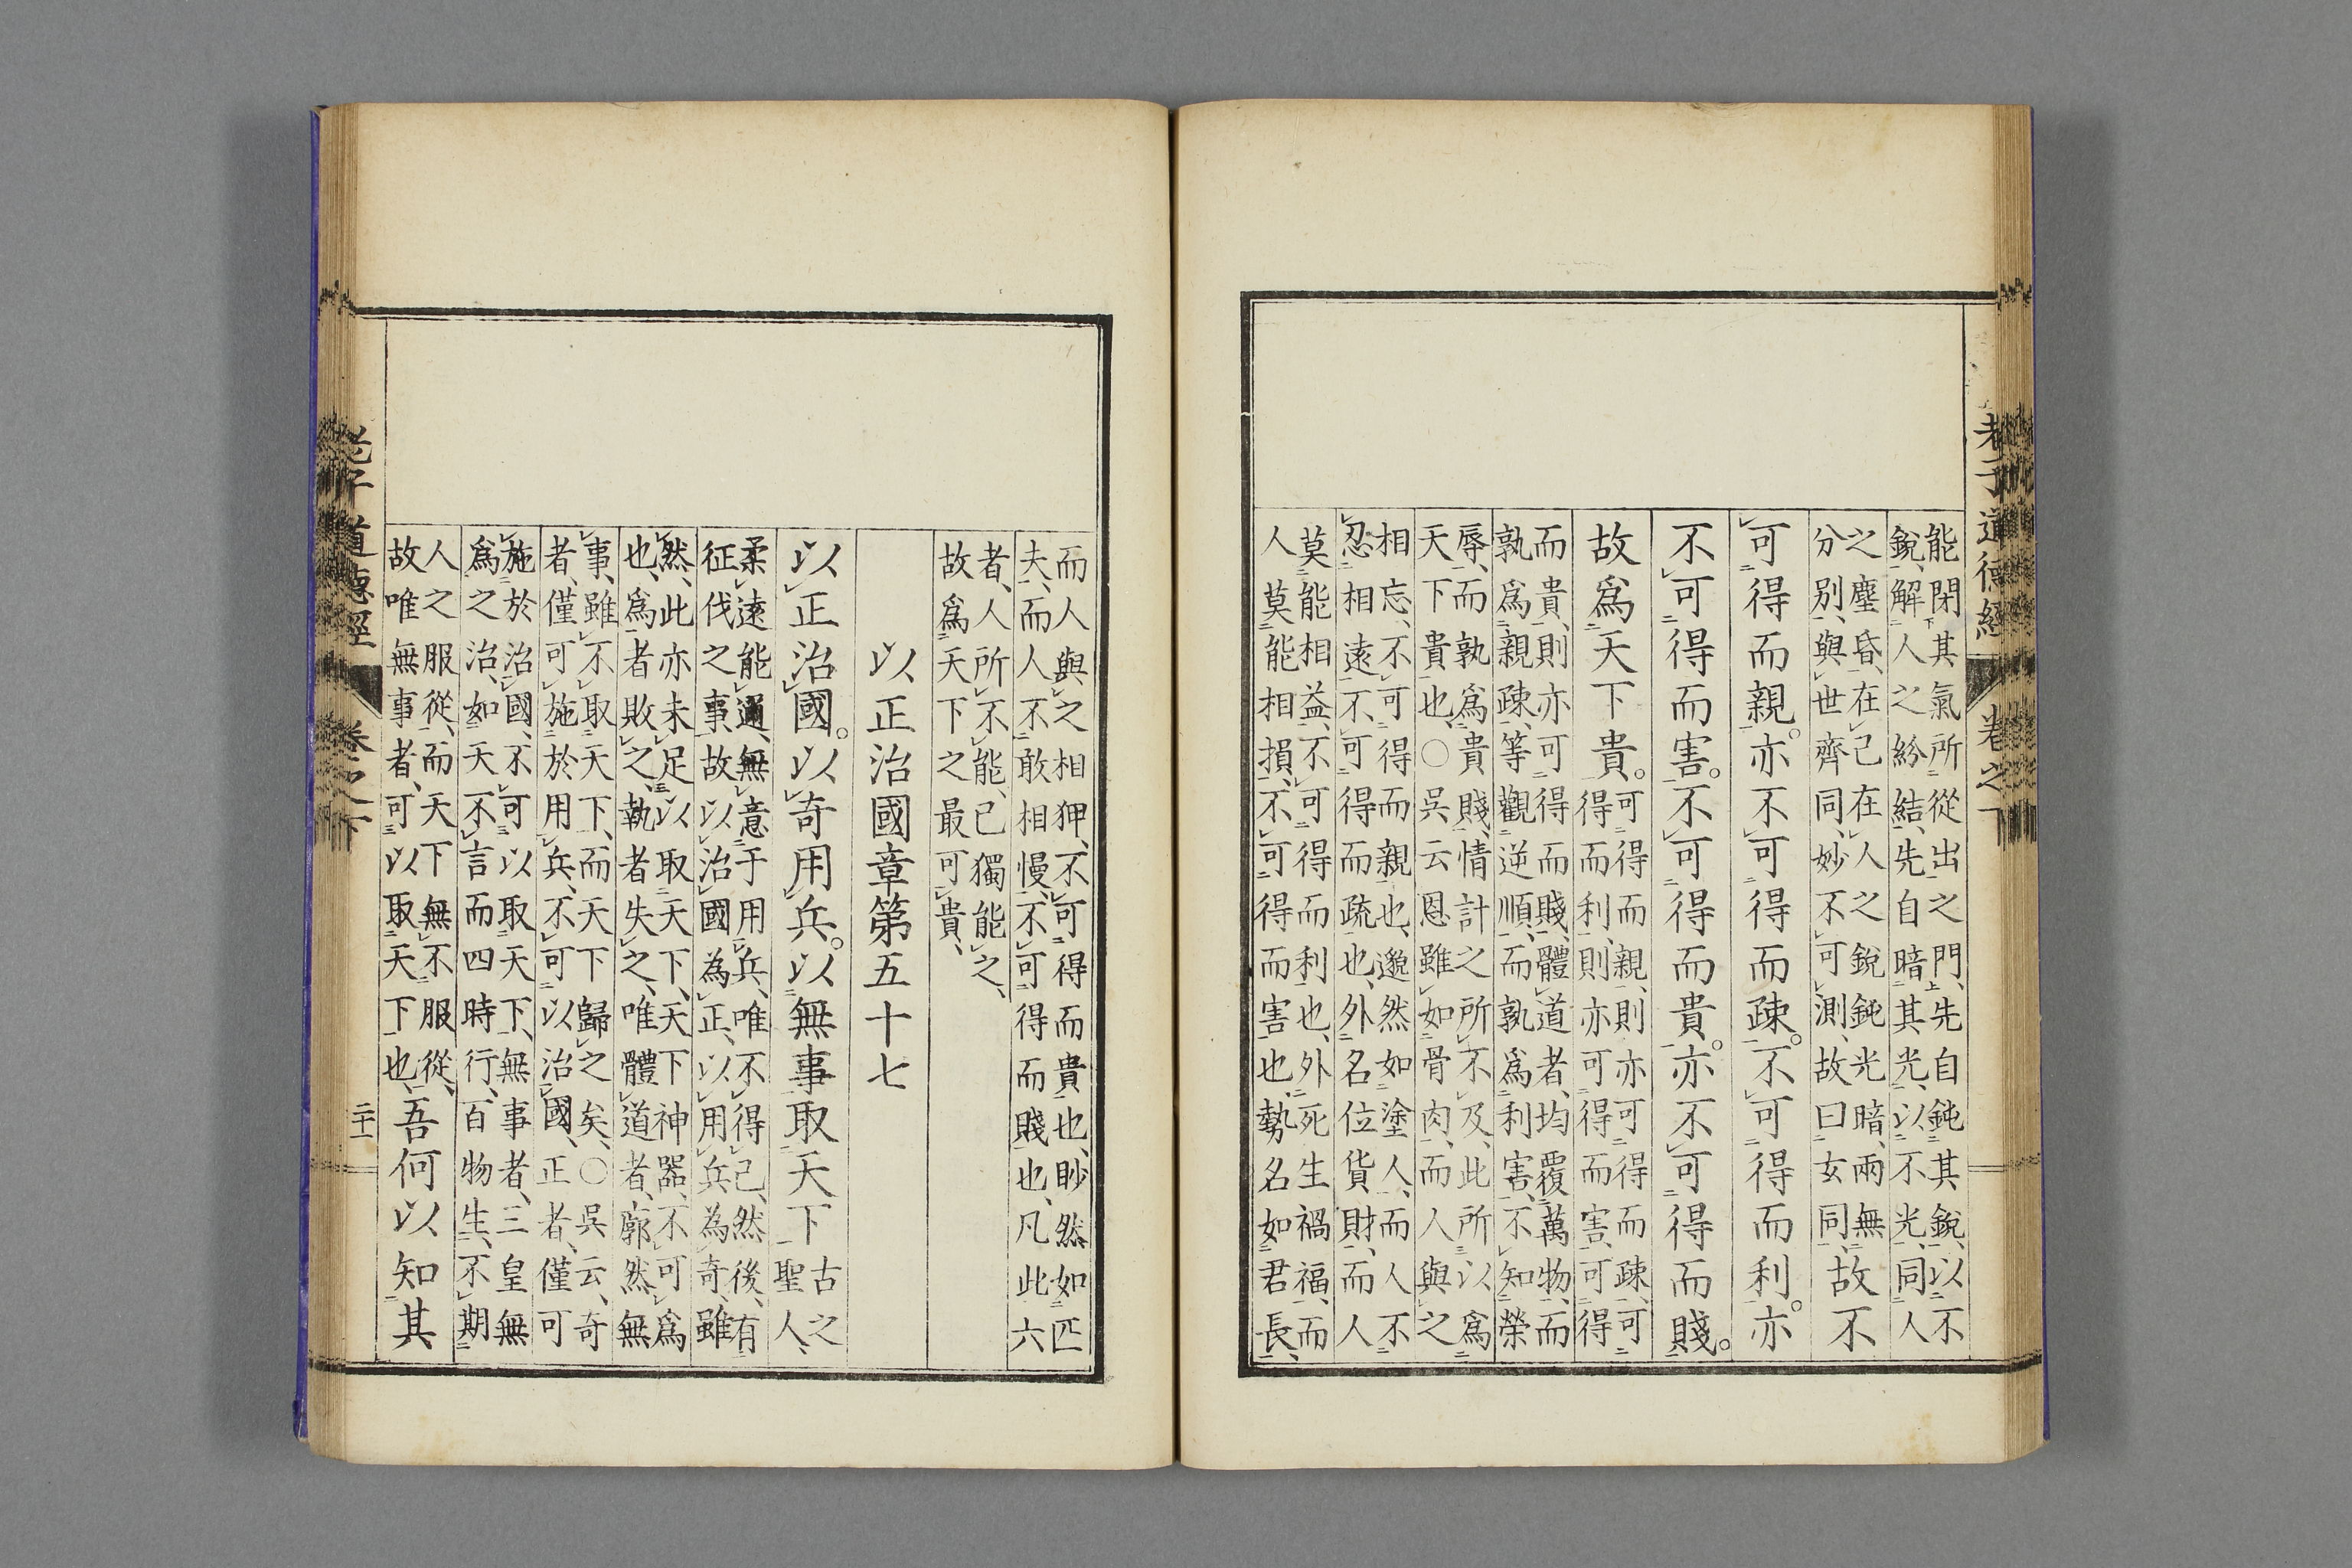 老子道德經 卷之下
能閉其氣所從出之門、先自鈍其銳、以不
銳、解人之紛結、先自暗其光、以不光、同人
之塵昏、在己在人之銳鈍光暗、兩無
分別、與世齊同、妙不可測、故曰玄同、
故不
可得而親。亦不可得而疎。不可得而利。亦
不可得而害。不可得而貴。亦不可得而賤。
故爲天下貴。
可得而親、則亦可得而疎、可
得而利、則亦可得而害、可得
而貴、則亦可得而賤、體道者、均覆萬物、而
孰爲親疎、等觀逆順、而孰爲利害、不知榮
辱、而孰爲貴賤、情計之所不及、此所以爲
天下貴也、〇吳云恩雖如骨肉、而人與之
相忘、不可得而親也、邈然如塗人、而人不
忍相遠、不可得而疏也、外名位貨財、而人
莫能相益、不可得而利也、外死生禍福、而
人莫能相損、不可得而害也、勢名如君長、
而人與之相狎、不可得而貴也、眇然如匹
夫、而人不敢相慢、不可得而賤也、凡此六
者、人所不能、已獨能之、
故爲天下之最可貴、
以正治國章第五十七
以正治國。以奇用兵。以無事取天下
古之
聖人、
柔遠能邇、無意于用兵、唯不得已、然後有
征伐之事、故以治國為正、以用兵為奇、雖
然、此亦未足以取天下、天下神器、不可爲
也、爲者敗之、執者失之、唯體道者、廓然無
事、雖不取天下、而天下歸之矣、〇吳云、奇
者、僅可施於用兵、不可以治國、正者、僅可
施於治國、不可以取天下、無事者、三皇無
爲之治、如天不言而四時行、百物生、不期
人之服從、而天下無不服從、
故唯無事者、可以取天下也、
吾何以知其
老子道德經 卷之下 二十一